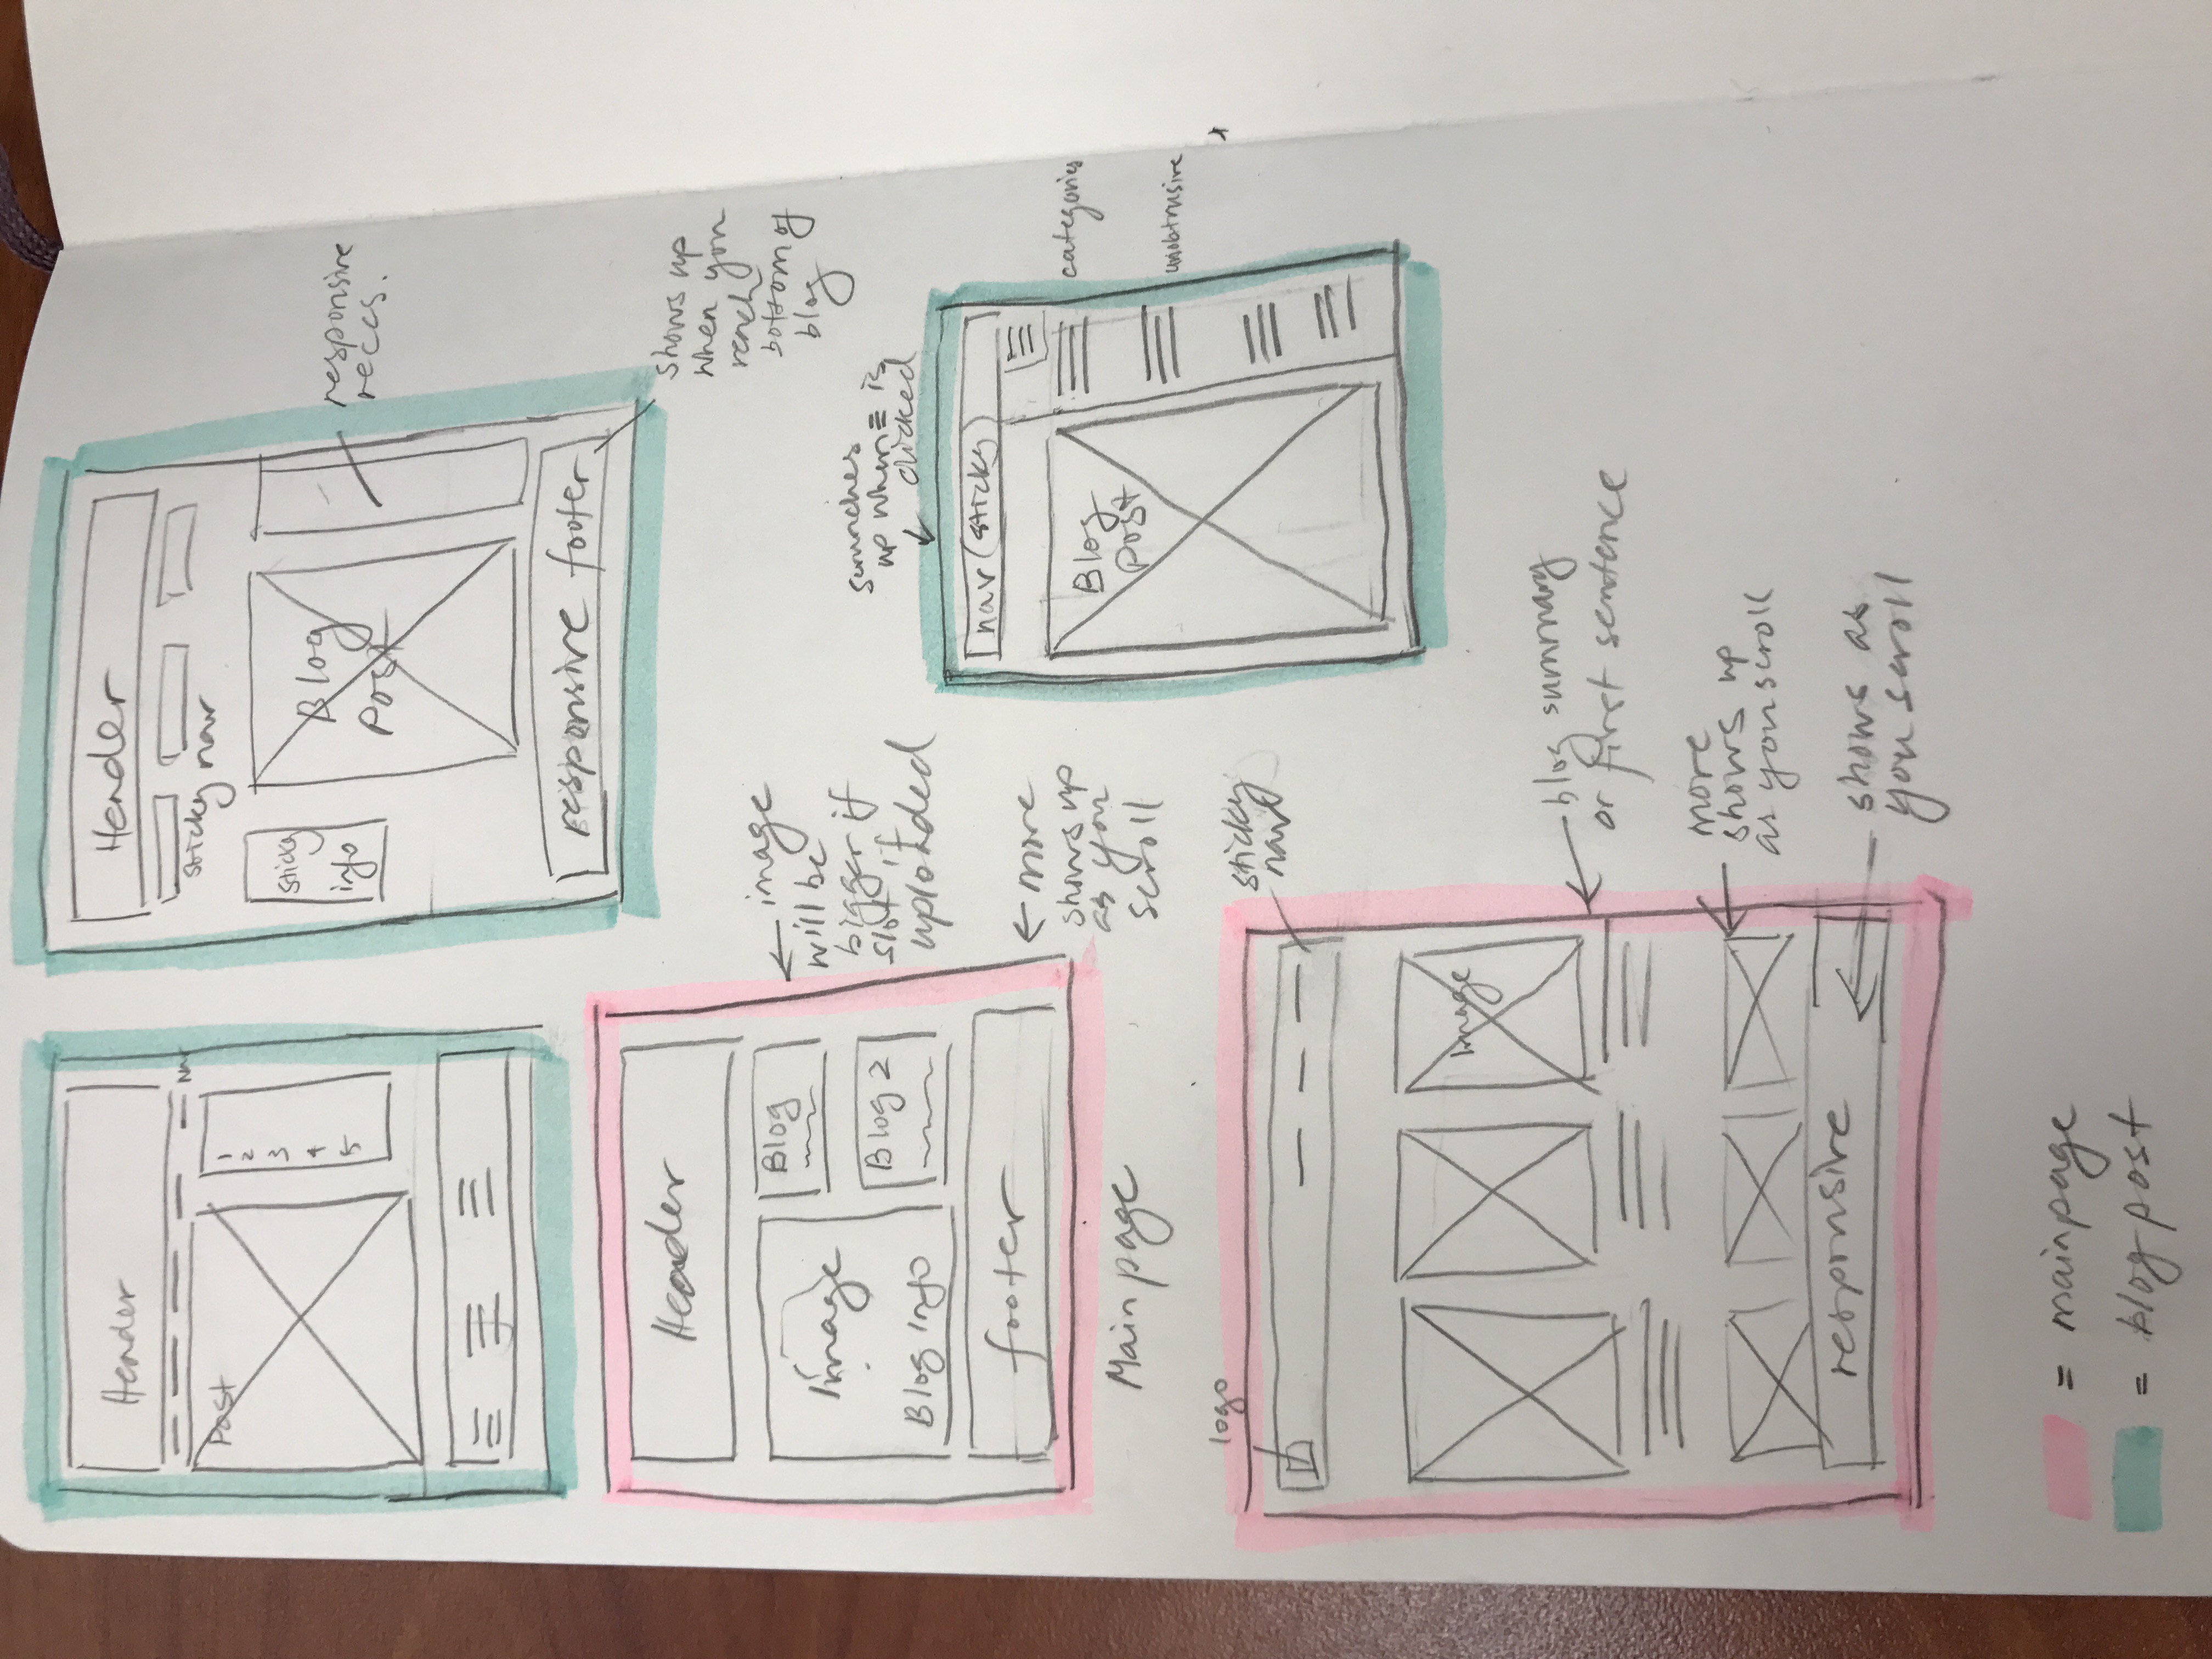 Header
Nav
Post
1
2
3
4
5
Header
sticky nav
sticky
info
Blog
Post
responsive
reccs.
responsive footer
shows up
when you
reach
bottom of
blog
Header
Image
Blog info
Blog
Blog 2
footer
Main page
image
will be
bigger if
slot if
uploaded
more
shows up
as you
scroll
scrunches
up when ≡ is
clicked
nav (sticky)
Blog
Post
categories
unobtrusive
logo
sticky
nav
Image
blog summary
or first sentence
more
shows up
as you scroll
responsive
shows as
you scroll
= mainpage
= blog post